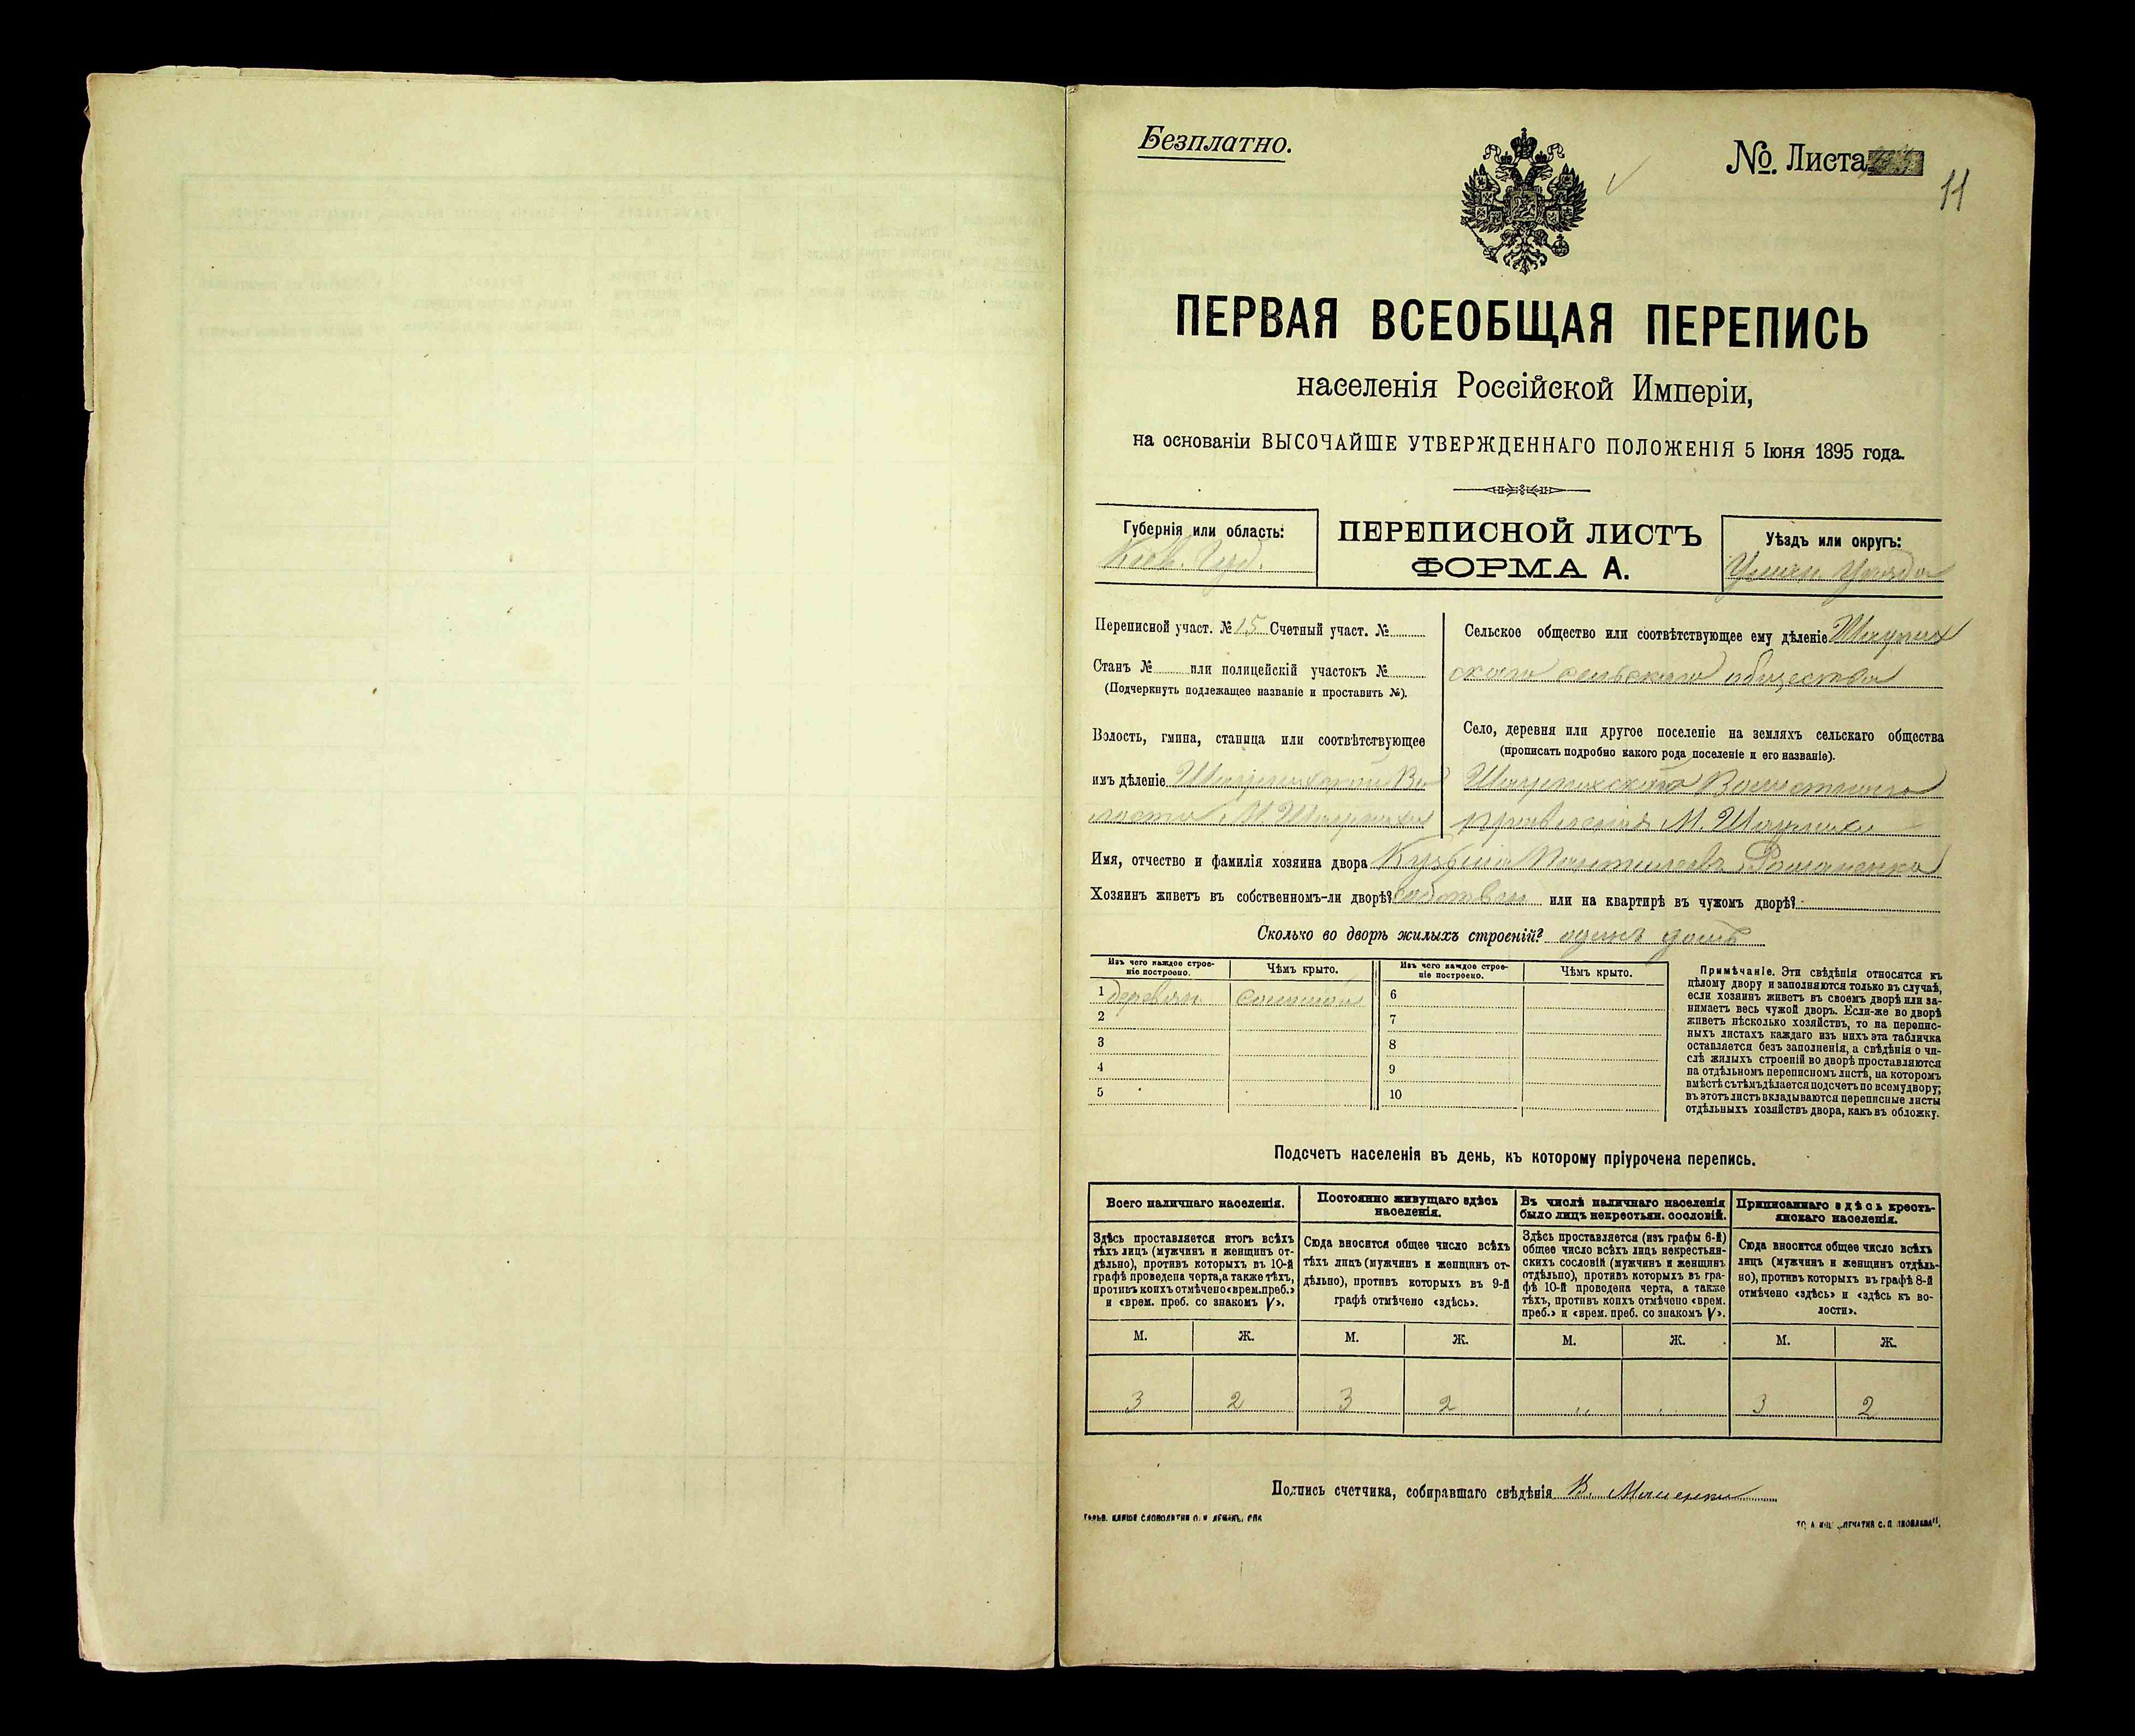 Безплатно.
№. Листа
11
ПЕРВАЯ ВСЕОБЩАЯ ПЕРЕПИСЬ
населенія Россійской Имперіи,
на основаніи ВЫСОЧАЙШЕ УТВЕРЖДЕННАГО ПОЛОЖЕНІЯ 5 Іюня 1895 года.
Губернія или область:
Кіев. Губ.
ПЕРЕПИСНОЙ ЛИСТЪ
ФОРМА А.
Уѣздъ или округъ:
Уман. Уѣзда
Переписной участ. № 15 Счетный участ. №
Станъ № или полицейскій участокъ №
(Подчеркнуть подлежащее названіе и проставить №).
Волость, гмина, станица или соотвѣтствующее
имъ дѣленіе Шаулихской Во
лости, М. Шаулихи
Сельское общество или соотвѣтствующее ему дѣленіе Шаулих
скаго сельскаго общества
Село, деревня или другое поселеніе на земляхъ сельскаго общества
(прописать подробно какого рода поселеніе и его названіе).
Шаулихскаго Волостнаго
правленія М. Шаулихи
Имя, отчество и фамилія хозяина двора Кузьма Пантилеевъ Романенко
Хозяинъ живетъ въ собственномъ-ли дворѣ? собствен или на квартирѣ въ чужомъ дворѣ?
Сколько во дворѣ жилыхъ строеній? одинъ домъ
Изъ чего каждое строе-
ніе построено.
Чѣмъ крыто.
Изъ чего каждое строе-
ніе построено.
Чѣмъ крыто.
1 деревян. соломой 6
2 7
3 8
4 9
5 10
Примѣчаніе. Эти свѣдѣнія относятся къ
цѣлому двору и заполняются только въ случаѣ,
если хозяинъ живетъ въ своемъ дворѣ или за-
нимаетъ весь чужой дворъ. Если-же во дворѣ
живетъ нѣсколько хозяйствъ, то на перепис-
ныхъ листахъ каждаго изъ нихъ эта табличка
оставляется безъ заполненія, а свѣдѣнія о чи-
слѣ жилыхъ строеній во дворѣ проставляются
на отдѣльномъ переписномъ листѣ, на которомъ
вмѣстѣ съ тѣмъ дѣлается подсчетъ по всему двору;
въ этотъ листъ вкладываются переписные листы
отдѣльныхъ хозяйствъ двора, какъ въ обложку.
Подсчетъ населенія въ день, къ которому пріурочена перепись.
Всего наличнаго населенія.
Здѣсь проставляется итогъ всѣхъ
тѣхъ лицъ (мужчинъ и женщинъ от-
дѣльно), противъ которыхъ въ 10-й
графѣ проведена черта, а также тѣхъ,
противъ коихъ отмѣчено «врем. преб.»
и «врем. преб. со знакомъ V».
Постоянно живущаго здѣсь
населенія.
Сюда вносится общее число всѣхъ
тѣхъ лицъ (мужчинъ и женщинъ от-
дѣльно), противъ которыхъ въ 9-й
графѣ отмѣчено «здѣсь».
Въ числѣ наличнаго населенія
было лицъ некрестьян. сословій.
Здѣсь проставляется (изъ графы 6-й)
общее число всѣхъ лицъ некрестьян-
скихъ сословій (мужчинъ и женщинъ
отдѣльно), противъ которыхъ въ гра-
фѣ 10-й проведена черта, а также
тѣхъ, противъ коихъ отмѣчено «врем.
преб.» и «врем. преб. со знакомъ V».
Приписаннаго здѣсь кресть-
янскаго населенія.
Сюда вносится общее число всѣхъ
лицъ (мужчинъ и женщинъ отдѣль-
но), противъ которыхъ въ графѣ 8-й
отмѣчено «здѣсь» и «здѣсь къ во-
лости».
М. Ж. М. Ж. М. Ж. М. Ж.
3 2 3 2 „ „ 3 2
Подпись счетчика, собиравшаго свѣдѣнія В.